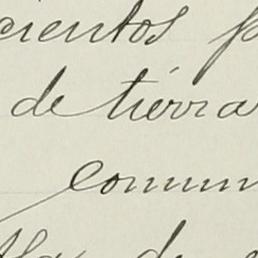 cientos p
de tierra
comun
de